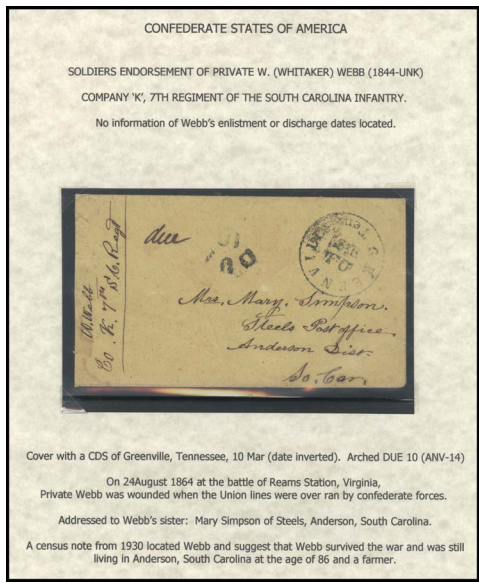 CONFEDERATE STATES OF AMERICA
SOLDIERS ENDORSEMENT OF PRIVATE W. (WHITAKER) WEBB (1844-UNK)
COMPANY 'K', 7TH REGIMENT OF THE SOUTH CAROLINA INFANTRY.
No information of Webb's enlistment or discharge dates located.
W. Webb
Co. K. 7th S. C. Regt
due
Mrs. Mary. Simpson.
Steels Post office
Anderson Dist.
So. Car.
Cover with a CDS of Greenville, Tennessee, 10 Mar (date inverted). Arched DUE 10 (ANV-14)
On 24August 1864 at the battle of Reams Station, Virginia,
Private Webb was wounded when the Union lines were over ran by confederate forces.
Addressed to Webb's sister: Mary Simpson of Steels, Anderson, South Carolina.
A census note from 1930 located Webb and suggest that Webb survived the war and was still
living in Anderson, South Carolina at the age of 86 and a farmer.